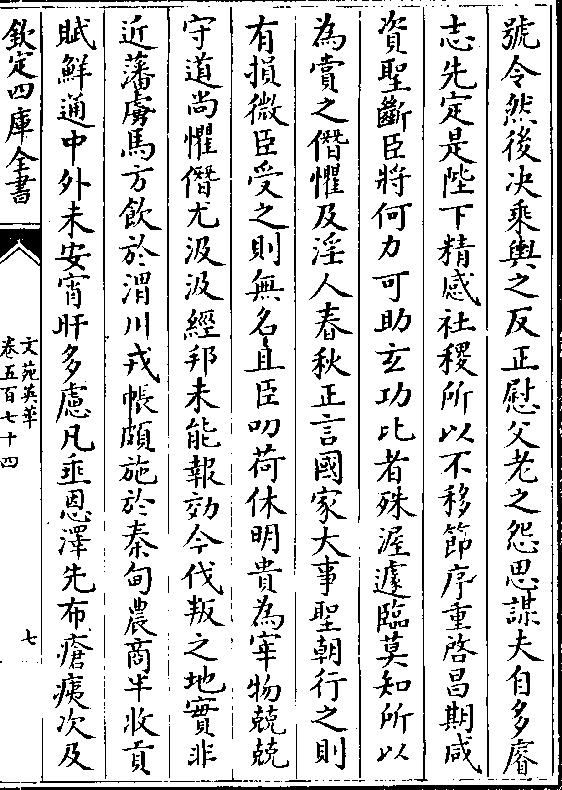 號令然後決乘輿之反正慰父老之怨思謀夫自多睿
志先定是陛下精感社稷所以不移節序重啓昌期咸
資聖斷臣將何力可助玄功比者殊渥遽臨莫知所以
為賞之僭懼及淫人春秋正言國家大事聖朝行之則
有損微臣受之則無名且臣叨荷休明貴為宰物兢兢
守道尚懼僭尤汲汲經邦未能報効今伐叛之地實非
近藩虜馬方飲於渭川戎帳頗施於秦甸農商半收貢
賦鮮通中外未安宵旰多慮凡垂恩澤先布瘡痍次及
欽定四庫全書
文苑英華
卷五百七十四
七